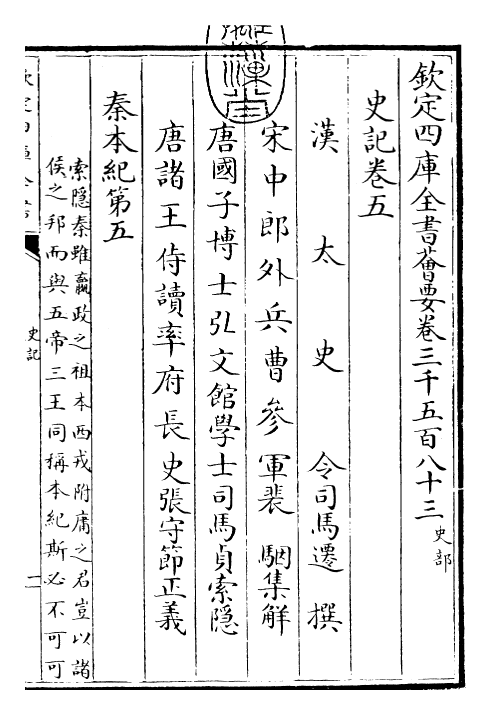 欽定四庫全書薈要卷三千五百八十三 史部
史記卷五
漢太史令司馬遷撰
宋中郎外兵曹參軍裴駰集解
唐國子博士弘文館學士司馬貞索隱
唐諸王侍讀率府長史張守節正義
秦本紀第五
索隱秦雖嬴政之祖本西戎附庸之君豈以諸
侯之邦而與五帝三王同稱本紀斯必不可可
史記